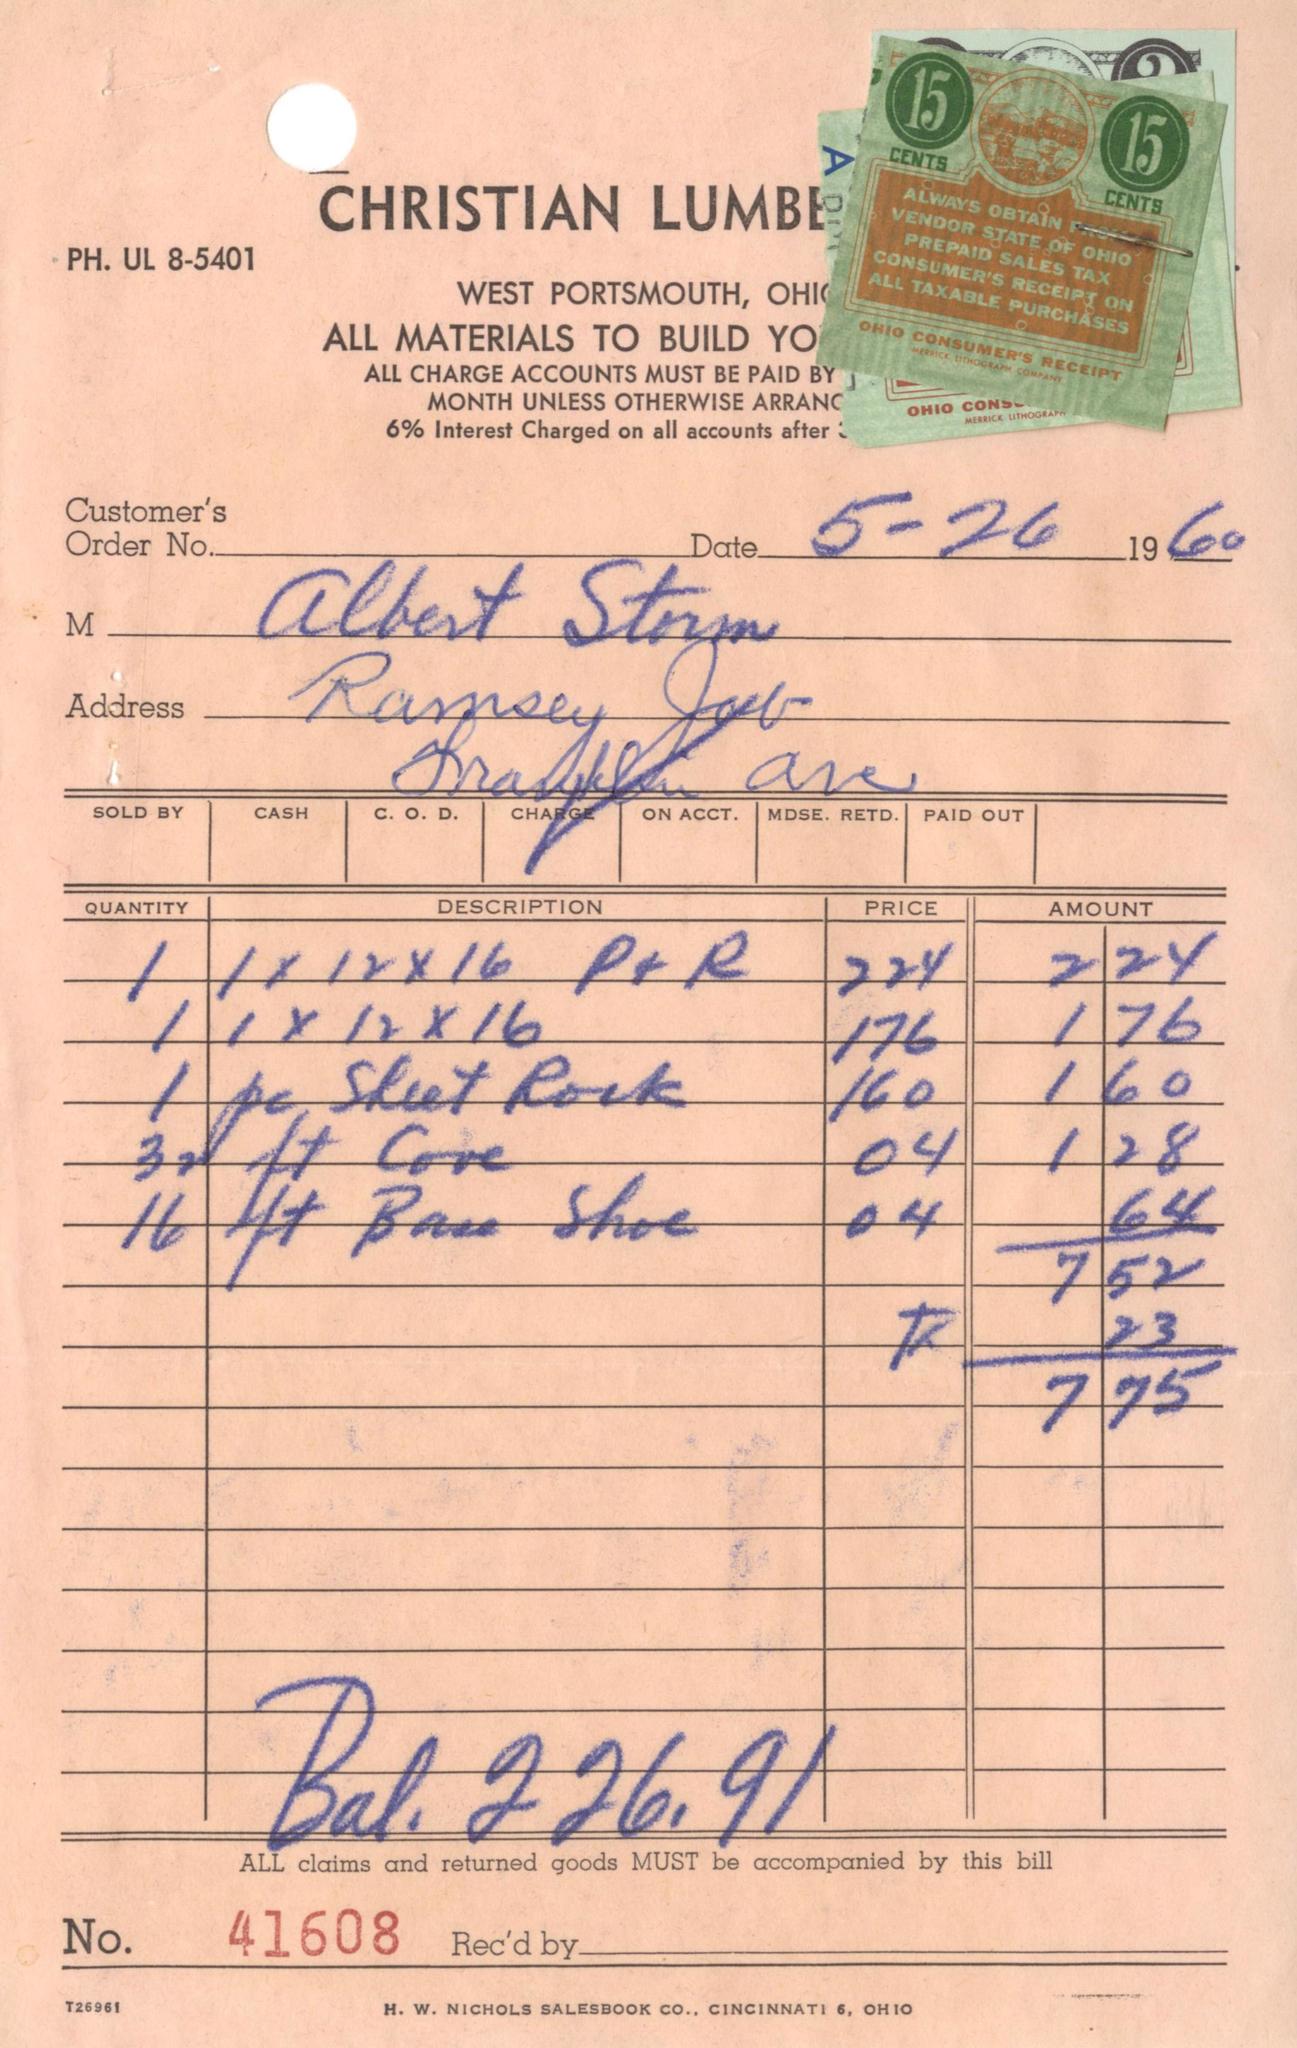 CHRISTIAN LUMBE
PH. UL 8-5401
WEST PORTSMOUTH, OHIO
ALL MATERIALS TO BUILD YO
ALL CHARGE ACCOUNTS MUST BE PAID BY
MONTH UNLESS OTHERWISE ARRANG
6% Interest Charged on all accounts after 3
15 CENTS 15 CENTS
ALWAYS OBTAIN FROM
VENDOR STATE OF OHIO
PREPAID SALES TAX
CONSUMER'S RECEIPT ON
ALL TAXABLE PURCHASES
OHIO CONSUMER'S RECEIPT
MERRICK LITHOGRAPH COMPANY
A
OHIO CONSU
MERRICK LITHOGRAPH
Customer's
Order No. Date 5-26 1960
M Albert Storm
Address Ramsey Job
Franklin Ave
SOLD BY CASH C. O. D. CHARGE ON ACCT. MDSE. RETD. PAID OUT
QUANTITY DESCRIPTION PRICE AMOUNT
1 1 x 12 x 16 P + R 224 2 24
1 1 x 12 x 16 176 1 76
1 pc Sheet Rock 160 1 60
32 ft Cove 04 1 28
16 ft Base Shoe 04 64
7 52
TX 23
7 75
Bal. 226.91
ALL claims and returned goods MUST be accompanied by this bill
No. 41608 Rec'd by
T26961 H. W. NICHOLS SALESBOOK CO., CINCINNATI 6, OHIO